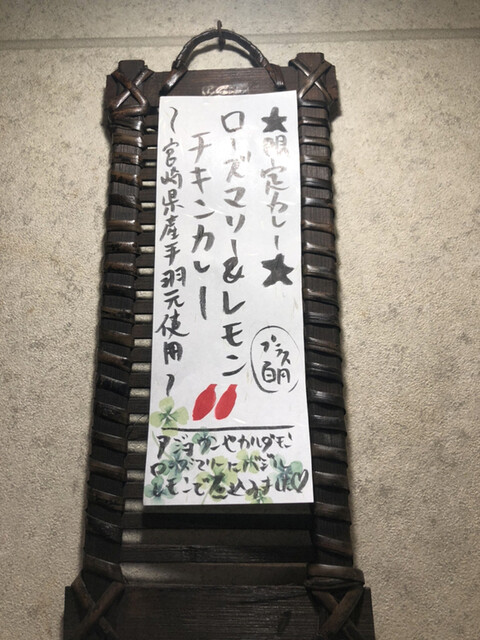 ★限定カレー★
ローズマリー&レモン
チキンカレー
～宮崎県産手羽元使用～
プラス
百円
アジョワンやカルダモン
ローズマリーにバジル
レモンで煮込みました♡